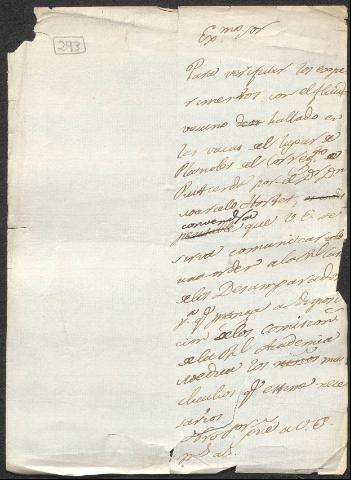 293
Ex.mo Sor
Para verificar los espe
rimentos con el fluido
vacuno hallado en
las vacas del lugar de
Planoles del Correg.to de
Puigcerda por el Dr Dn
convendra
que V.E. se
sirva comunicar
una orden a la
de los Desamparados
pa qe ponga a disposi
cion de los comision.
de la Rl Academia
Medica los mu
chachos qe estime nece
sarios